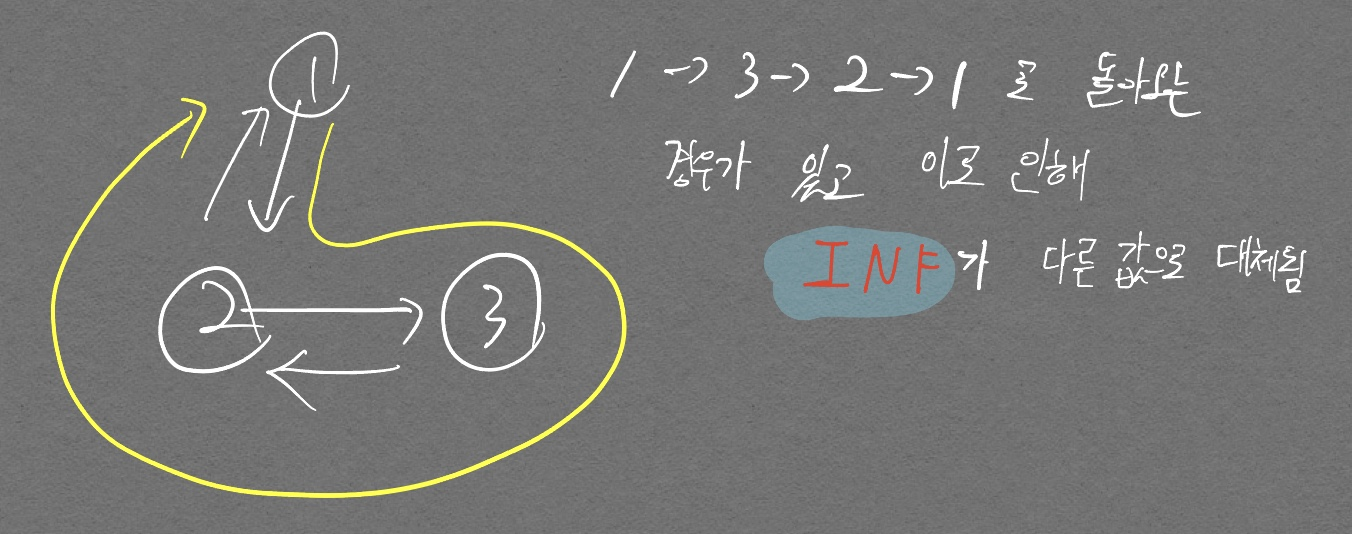 1
2
3
1 -> 3 -> 2 -> 1 로 돌아오는
경우가 있고 이로 인해
INF가 다른 값으로 대체됨